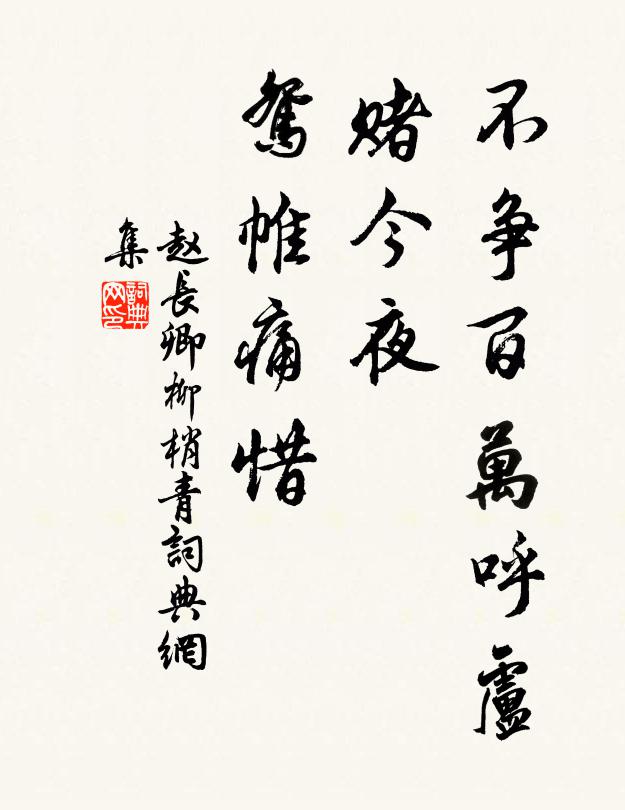 不争百萬呼盧
賭今夜
鴛帷痛惜
赵長卿柳梢青詞典網
集
詞典
网印